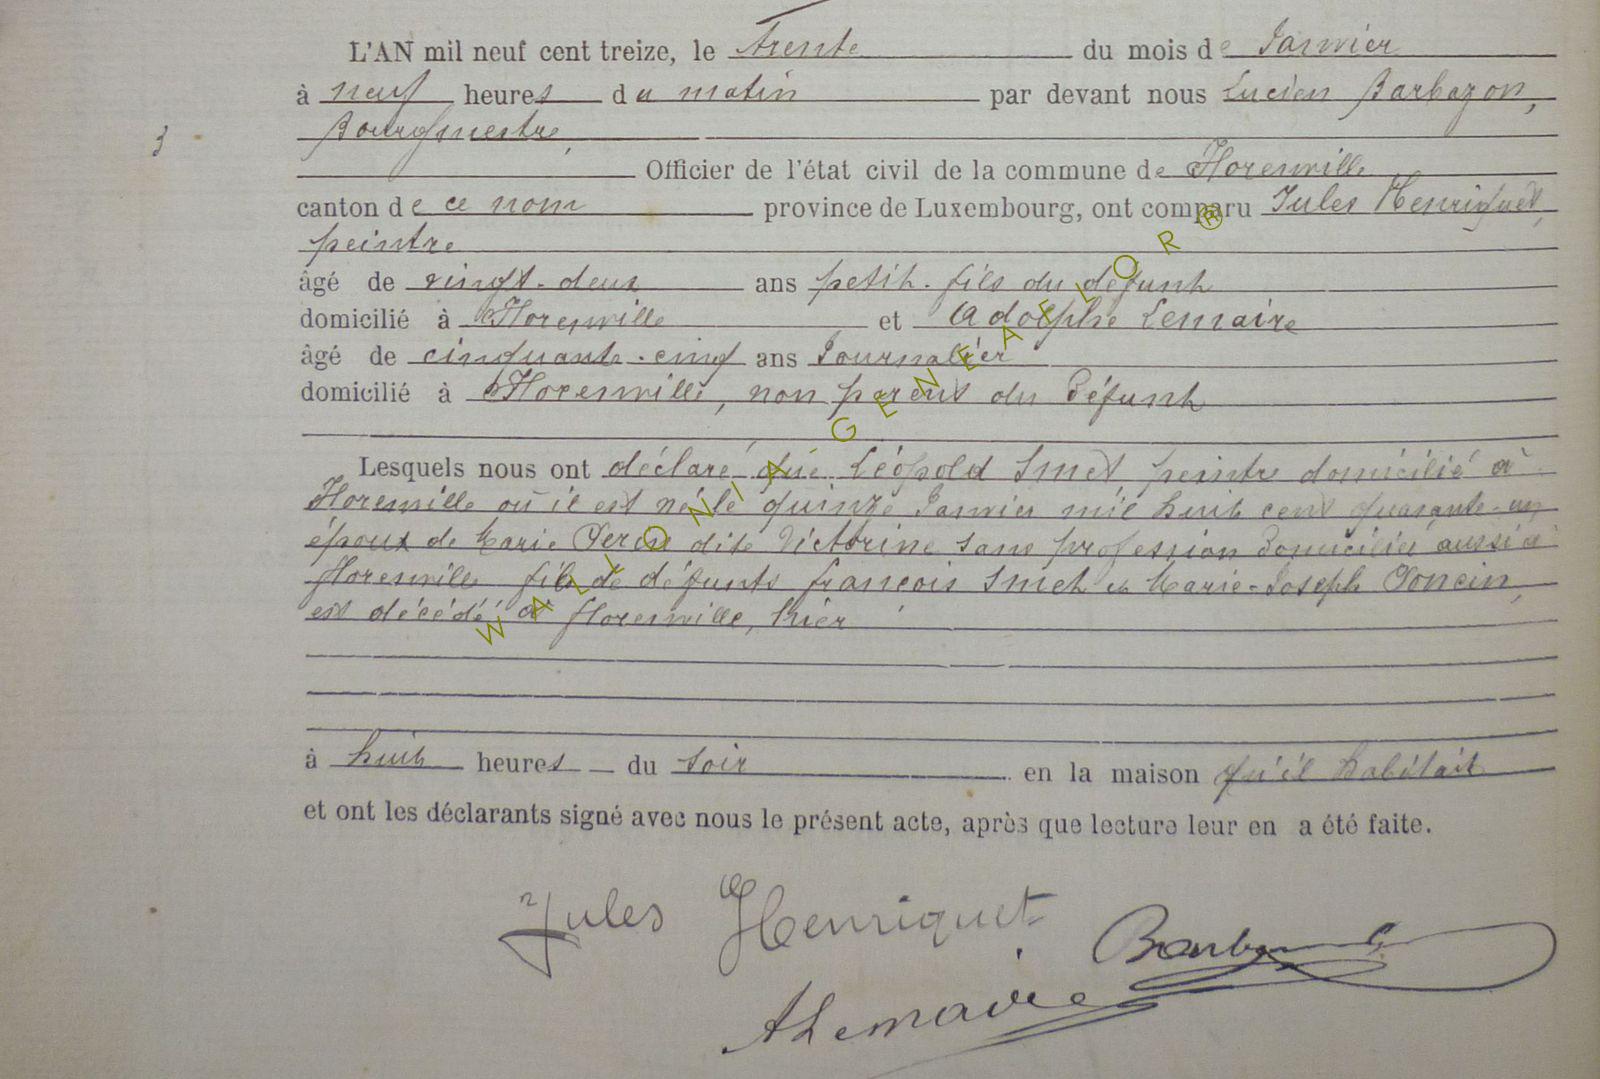 L'AN mil neuf cent treize, le trente du mois de Janvier
à neuf heures du matin par devant nous Lucien Barbazon,
Bourgmestre,
3
Officier de l'état civil de la commune de Florenville
canton de ce nom province de Luxembourg, ont comparu Jules Henriquet,
peintre
âgé de vingt-deux ans petit-fils du défunt
domicilié à Florenville et Adolphe Lemaire
âgé de cinquante-cinq ans Journalier
domicilié à Florenville, non parent du défunt
Lesquels nous ont déclaré que Léopold Smet, peintre domicilié à
Florenville où il est né le quinze Janvier mil huit cent quarante-un
époux de Marie dite Victorine sans profession domiciliée aussi à
Florenville fils de défunts françois Smet et Marie-Joseph Poncin,
est décédé à florenville, hier
à huit heures du soir en la maison qu'il habitait
et ont les déclarants signé avec nous le présent acte, après que lecture leur en a été faite.
Jules Henriquet
Barbazon
ALemaire
WALLONIA GENEALOR®